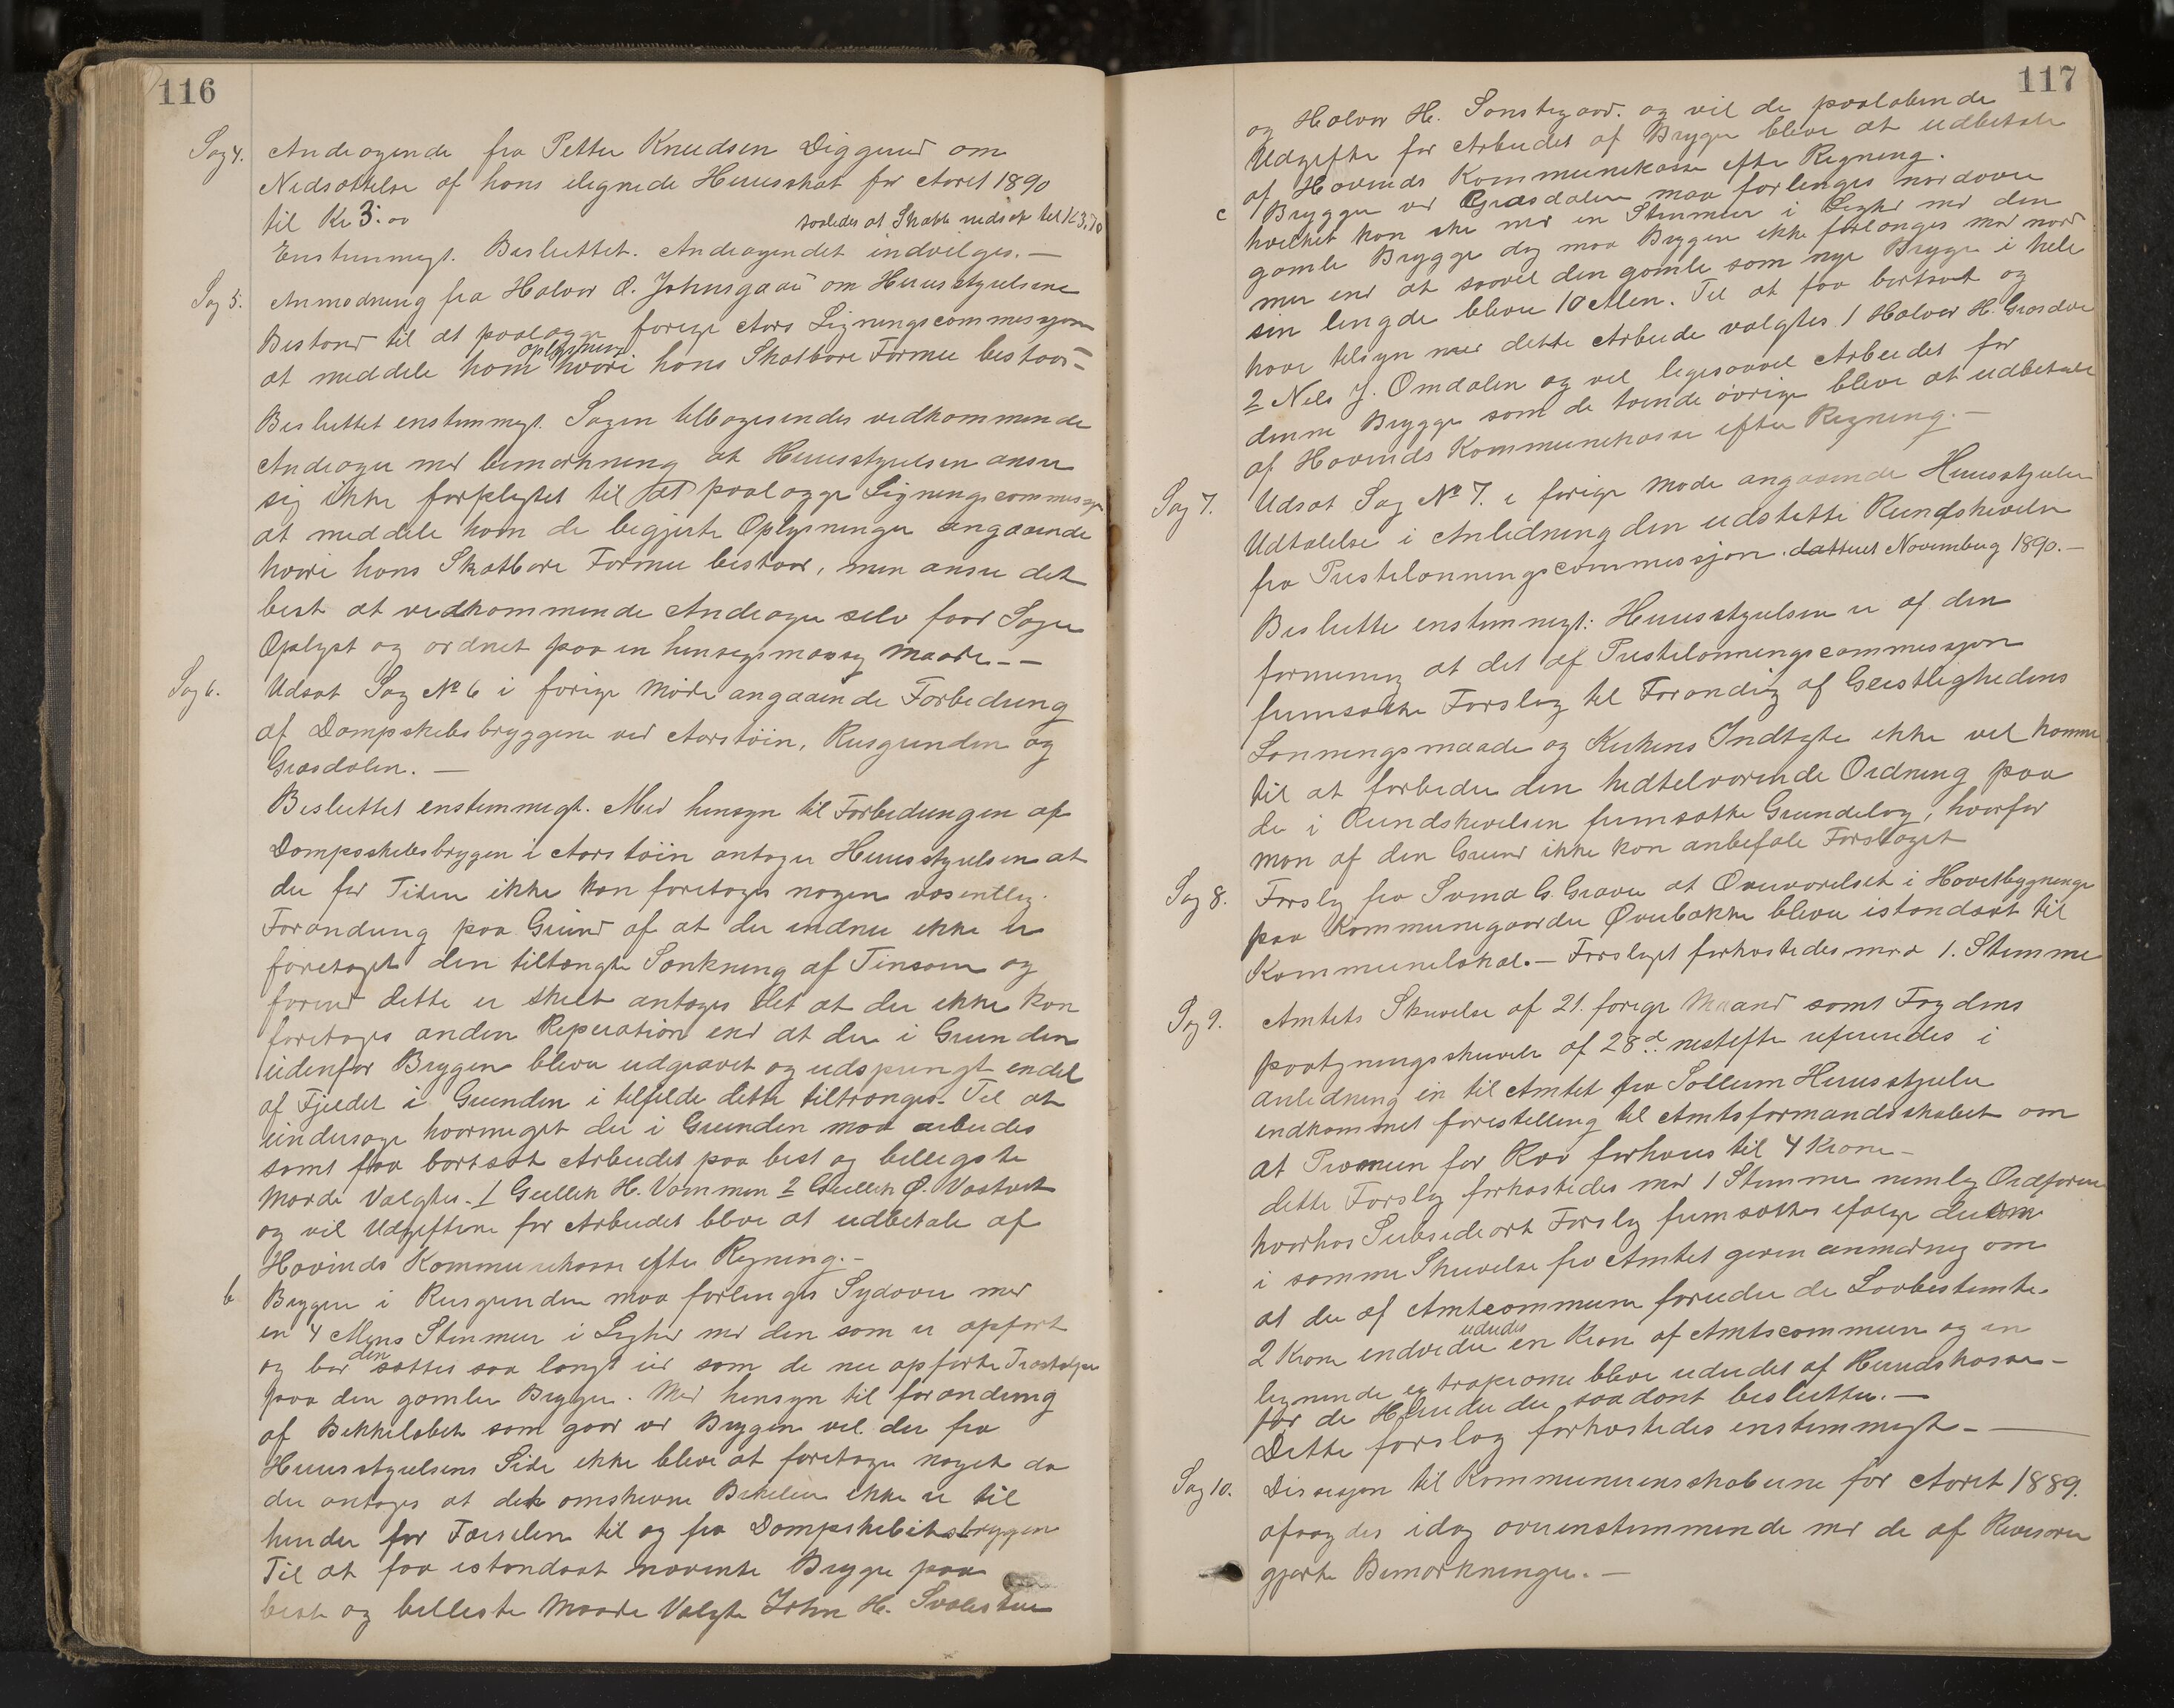 116
Sag 4. Andragende fra Petter Knudsen Diggerud om
Nedsættelse af hans ilignede Herresskat for Aaret 1890
til Kr 3.00 saaledes at Skatte nedsat til K 3,70
Enstemmigt. Besluttet. Andragendet indvilges. —
Sag 5. Anmodning fra Halvor O. Johnsgaar om Herresstyrelsens
Bistand til at paalægge forrige Aars Ligningscommissjon
at meddele ham oplysning hvori hans Skatbare Formue bestaar –
Besluttet enstemmigt. Sagen tilbagesendes vedkommende
Andrager med bemærkning at Herresstyrelsen anser
sig ikke forpligtet til at paalægge Ligningscommissjon
at meddele ham de begjerte Oplysninger angaaende
hvori hans Skatbare Formue bestaar, men anser det
best at vedkommende Andrager selv faar Sagen
Oplyst og ordnet paa en hensigsmæssig Maade. –
Sag 6. Udsat Sag No 6 i forige Møde angaaende Forbedring
af Dampskibsbryggene ved Aarstøin, Rusgrunden og
Græsdalen. —
Besluttet enstemmigt. Med hensyn til Forbedringen af
Dampsskibsbryggen i Aarstøin antager Herresstyrelsen at
der for Tiden ikke kan foretages nogen væsentlig
Forandring paa Grund af at der endnu ikke er
foretaget den tiltængte Sænkning af Tinsøen og
forend dette er skeet antages det at der ikke kan
foretages anden Reperation end at der i Grunden
udenfor Bryggen bliver udgravet og udsprængt endel
af Fjeldet i Grunden i tilfælde dette tiltrænges. Til at
undersøge hvormeget der i Grunden maa arbeides
samt faa bortsat Arbeidet paa best og billigste
Maade Valgtes. 1 Gullik H. Vammen 2 Gullik Ø. Vaatvet
og vil Udgifterne for Arbeidet blive at udbetale af
Hovinds Kommunekasse efter Regning. –
b Bryggen i Rusgrunden maa forlenges Sydover med
en 4 Alens Stenmur i Lighed med den som er opført
og bør den sættes saa langt ud som de nu opførte Træstolper
paa den gamle Brygge. Med hensyn til forandring
af Bekkeløbet som gaar ved Bryggen vil der fra
Herresstyrelsens Side ikke blive at foretage noget da
der antages at det omskrevne Bekkeløb ikke er til
hinder for Færselen til og fra Dampskibsbryggen
Til at faa istandsat nævnte Brygge paa
beste og billeste Maade Valgte John H. Svalestuen
117
og Halvor H. Sønstegaard. og vil de paaløbende
Udgifter for Arbeidet af Bryggen blive at udbetale
af Hovinds Kommunekasse efter Regning.
c Bryggen ved Græsdalen maa forlenges nordover
hvilket kan ske med en Stenmur i Lighed med den
gamle Brygge dog maa Bryggen ikke forlænges mod nord
mer end at saavel den gamle som nye Brygge i hele
sin lengde bliver 10 Alen. Til at faa bortsat og
have tilsyn med dette Arbeide valgtes 1 Halvor H. Græsdal
2 Nils J. Omdalen og vil ligesaavel Arbeidet for
denne Brygge som de tvende øvrige blive at udbetale
af Hovinds Kommunekasse efter Regning. —
Sag 7. Udsat Sag No 7. i forige Møde angaaende Herresstyrelsens
Udtalelse i Anledning den udstette Rundskrivelse
fra Prestelønningscommissjon. datteret Novemberg 1890. —
Beslutte enstemmigt: Herresstyrelsen er af den
formening at det af Prestelønningscommissjon
fremsatte Forslag til Forandrig af Geistlighedens
Lønningsmaade og Kirkens Indtægte ikke vil komme
til at forbedre den hidtilværende Ordning paa
de i Rundskrivelsen fremsatte Grundlag, hvorfor
man af den Grund ikke kan anbefale Forslaget
Sag 8. Forslag fra Svend G. Graver at Overværelset i Hovedbygningen
paa Kommunegaarden Øverbakke bliver istandsat til
Kommunelokal. — Forslaget forkastedes mod 1. Stemme
Sag 9. Amtets Skrivelse af 21. forige Maand samt Fogdens
paategningsskrivelse af 28d. nestefter refereredes i
anledning en til Amtet fra Sollum Herresstyrelse
indkommet forestilling til Amtsformandsskabet om
at Præmien for Rov forhøies til 4 Krone –
dette Forslag forkastedes mod 1 Stemme nemlig Ordføren
hvorhos Subsideært Forslag fremsattes ifølge den om
i samme Skrivelse fra Amtet given anmærkning om
at der af Amtcommunen foruden de Lovbestemte
2 Krone endvidere ududes en Krone af Amtscommunen og en
lignende extrapræmie blive ududet af Herredskassen –
for de Herreder der saadant beslutter. —
Dette forslag forkastedes enstemmigt — —
Sag 10. Dissesjon til Kommuneregnskaberne for Aaret 1889.
afsagdes idag overenstemmende med de af Revisoren
gjorte Bemærkninger. —